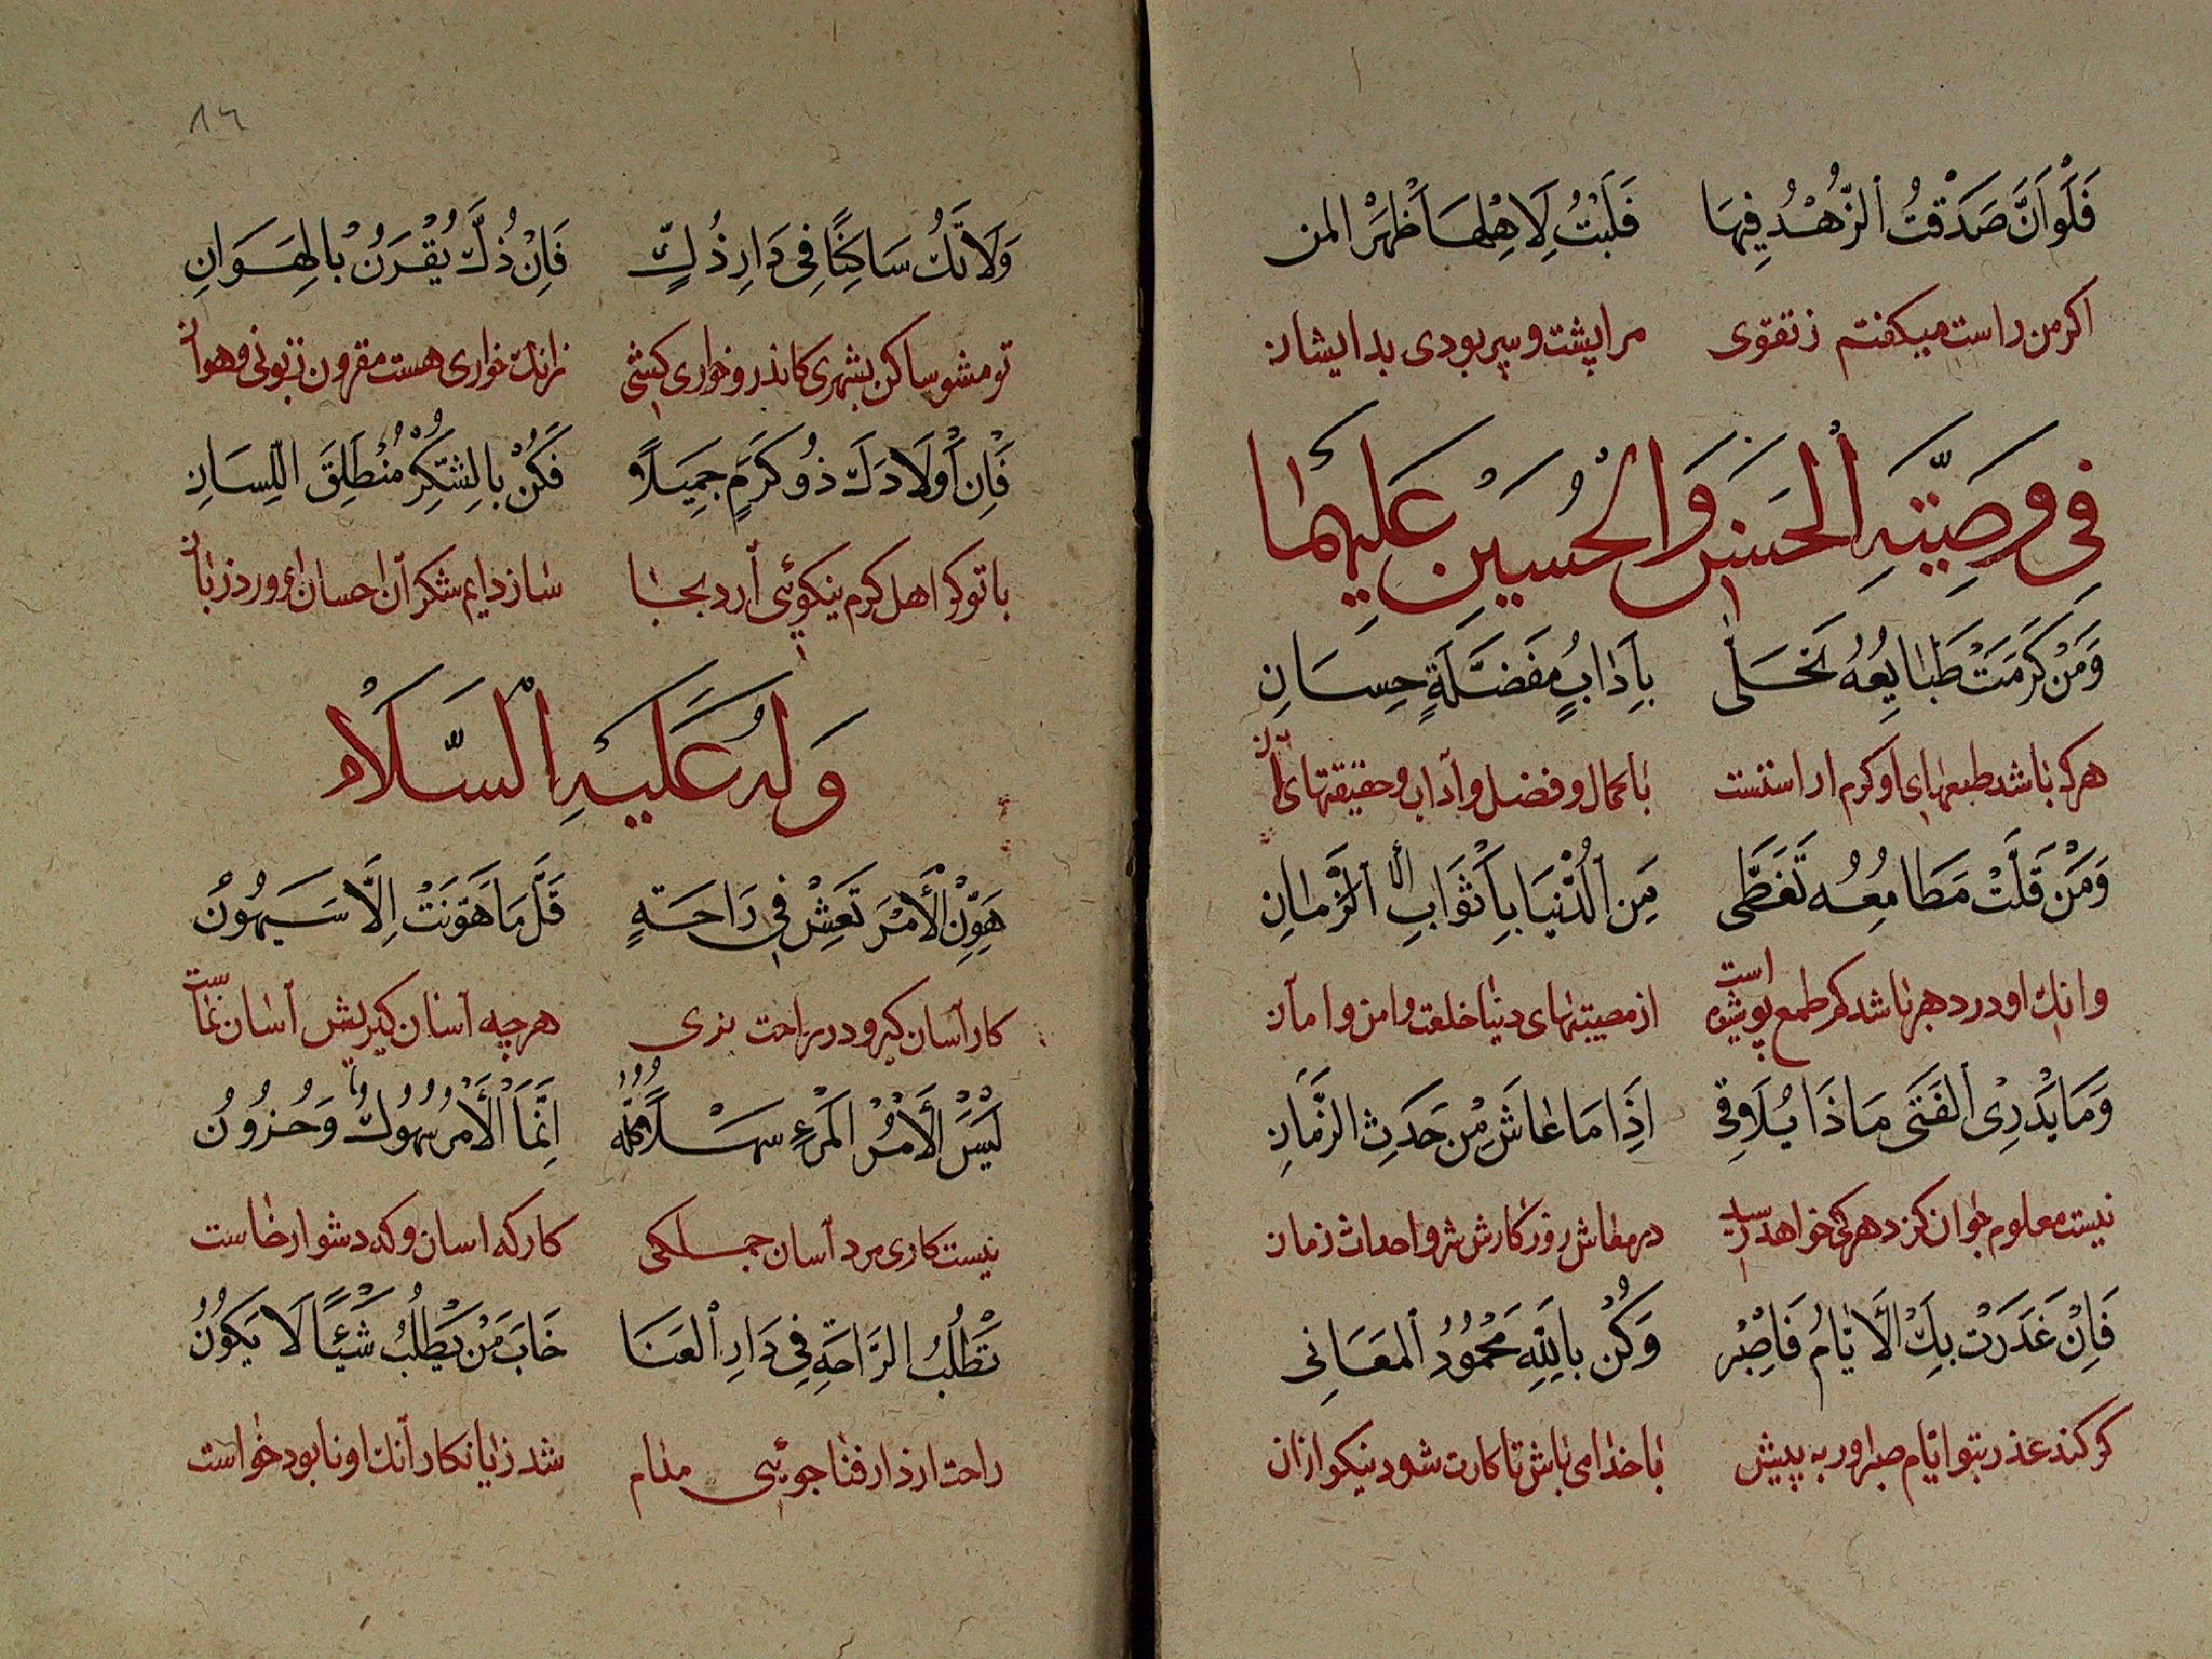 فَلَوْاَنَّ صَدَقْتُ الزُّهْدُ فِيهَا فَلَبْتُ لِاَهْلِهَا اَظْهَرَ المن
اکر من راست میکفتم زتقوی مرا پشت و سپر بودی بدایشان
فِي وَصِيَّتِهِ الْحَسَنَ وَالْحُسَيْنِ عَلَيْهِمَا
وَمَنْ كَرُمَتْ طَبَايِعُهُ تَحَلَّى بِاٰدَابٍ مُفَضَّلَةٍ حِسَانِ
هرکه باشد طبعهای او کرم اراستست با کمال و فضل و آداب و حقیقتهای
وَمَنْ قَلَّتْ مَطَامِعُهُ تَغَطَّى مِنَ الدُّنْيَا بِاَثْوَابِ الْاَمَانِ
وانک او در دهر باشد کم طمع پوشیده است از مصیبتهای دنیا خلعت و امن و امان
وَمَا يَدْرِى الْفَتَى مَاذَا يُلَاقِى اِذَا مَا عَاشَ مِنْ حَدَثِ الزَّمَانِ
نیست معلوم جوان کز دهر کی خواهد رسید در معاش روز کارش شر و احداث زمان
فَاِنْ غَدَرَتْ بِكَ الْاَيَّامُ فَاصْبِرْ وَكُنْ بِاللّٰهِ مَحْمُودَ الْمَعَانِى
کر کند غدر بتو ایام صبر اور به پیش با خدای باش تا کارت شود نیکو ازان
١٦
وَلَاتَكُ سَاكِنًا فِى دَارِ ذُلٍّ فَاِنَّ ذُلَّ يُقْرَنُ بِالْهَوَانِ
تو مشو ساکن بشهری کاندر و خواری کشی زانک خواری هست مقرون زبونی و هوان
فَاِنْ اَوْلَادَكَ ذُو كَرَمٍ جَمِيلًا فَكُنْ بِالشُّكْرِ مُنْطَلِقَ اللِّسَانِ
با تو کر اهل کرم نیکوئی آرد بجا ساز دایم شکر آن احسان او ورد زبان
وَلَهُ عَلَيْهِ السَّلَامُ
هَوِّنِ الْاَمْرَ تَعِشْ فِى رَاحَةٍ قَلَّ مَا هَوَّنْتَ اِلَّا سَيَهُونُ
کار آسان کیر و در راحت بزی هر چه آسان کیریش آسان نماست
لَيْسَ اَلْاَمْرُ الْمَرْءِ سَهْلًا كُلُّهُ اِنَّمَا الْاَمْرُ سُهُولٌ وَحُزُونُ
نیست کاری مرد آسان جملکی کار که اسان و که دشوار خاست
تَطْلُبُ الرَّاحَةَ فِى دَارِ الْعَنَا خَابَ مَنْ يَطْلُبُ شَيْئًا لَا يَكُونُ
راحت از دار فنا جوئی مدام شد زیانکار آنک او نابود خواست